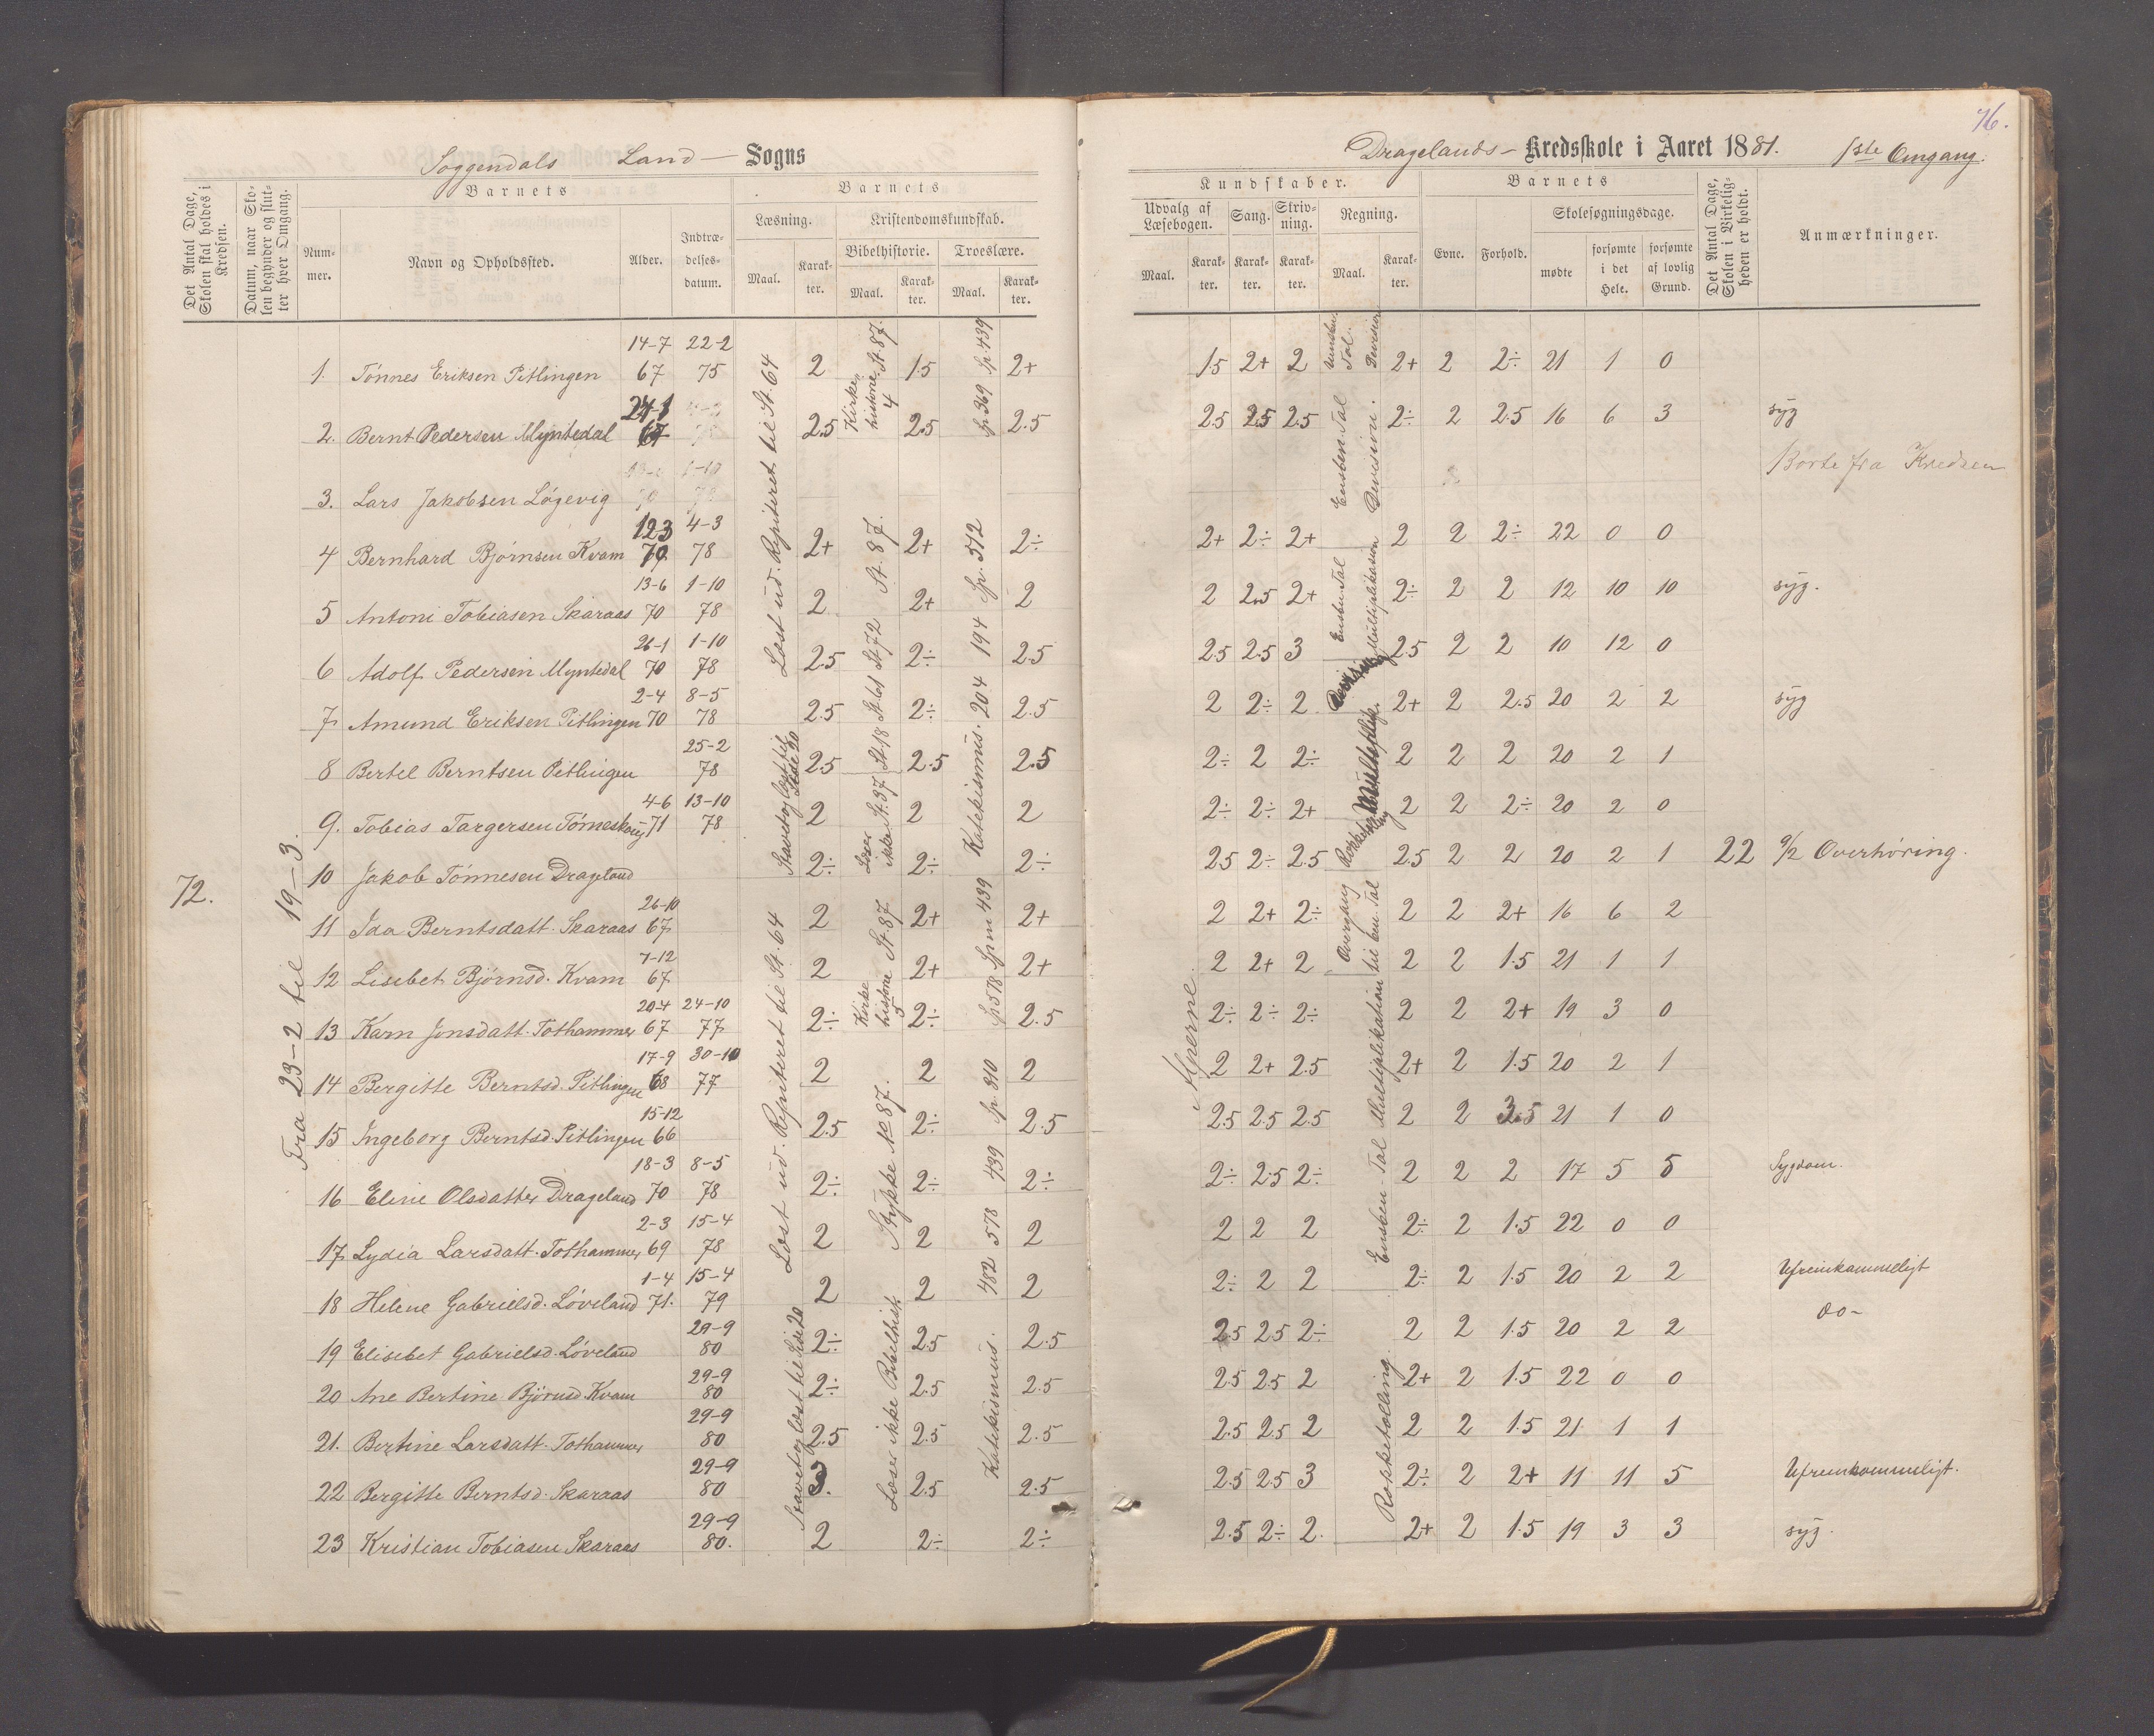 76.
Soggendals Land — Sogns
Dragelands - Kredsskole i Aaret 1881. 1ste Omgang.
Det Antal Dage, Skolen skal holdes i Kredsen.
Datum, naar Skolen begynder og slutter hver Omgang.
Barnets
Nummer.
Navn og Opholdssted.
Alder.
Indtrædelsesdatum.
Barnets
Læsning.
Kristendomskundskab.
Bibelhistorie.
Troeslære.
Maal. Karakter. Maal. Karakter. Maal. Karakter.
Kundskaber.
Udvalg af Læsebogen. Sang. Skrivning. Regning.
Maal. Karakter. Karakter. Karakter. Maal. Karakter.
Barnets
Evne. Forhold.
Skolesøgningsdage.
mødte forsømte i det Hele. forsømte af lovlig Grund.
Det Antal Dage, Skolen i Virkeligheden er holdt.
Anmærkninger.
72.
Fra 23-2 til 19-3.
1. Tönnes Eriksen Pitlingen 14-7 67 22-2 75 2 1.5 2+ 1.5 2+ 2 2+ 2 2÷ 21 1 0
2. Bernt Pedersen Myntedal 24-1 67 2.5 2.5 2.5 2.5 2.5 2.5 2÷ 2 2.5 16 6 3 syg
3. Lars Jakobsen Lögevig 1-10 Borte fra Kredsen
4 Bernhard Björnsen Kvam 12-3 70 4-3 78 2+ 2+ 2÷ 2+ 2÷ 2+ 2 2 2÷ 22 0 0
5 Antoni Tobiasen Skaraas 13-6 70 1-10 78 2 2+ 2 2 2.5 2+ 2÷ 2 2 12 10 10 syg.
6 Adolf Pedersen Myntedal 26-1 70 1-10 78 2.5 2÷ 2.5 2.5 2.5 3 2.5 2 2 10 12 0
7 Amund Eriksen Pitlingen 2-4 70 8-5 78 2.5 2÷ 2.5 2 2÷ 2 2+ 2 2.5 20 2 2 syg
8 Bertel Berntsen Pitlingen 25-2 78 2.5 2.5 2.5 2÷ 2 2÷ 2 2 2 20 2 1
9. Tobias Targersen 4-6 71 13-10 78 2 2 2 2÷ 2÷ 2+ 2 2 2÷ 20 2 0
10 Jakob Tönnesen Drageland 2÷ 2÷ 2÷ 2.5 2÷ 2.5 2.5 2 2 20 2 1 22 9/2 Overhöring.
11 Ida Berntsdatt. Skaraas 26-10 67 2 2+ 2+ 2 2+ 2÷ 2 2 2+ 16 6 2
12 Lisebet Björnsd. Kvam 7-12 67 2 2+ 2+ 2 2+ 2 2 2 1.5 21 1 1
13 Karn Jonsdatt. Tothammer 20-4 67 24-10 77 2÷ 2÷ 2.5 2÷ 2÷ 2÷ 2 2 2+ 19 3 0
14 Bergitte Berntsd. Pitlingen 17-9 68 30-10 77 2 2 2 2 2+ 2.5 2+ 2 1.5 20 2 1
15 Ingeborg Berntsd. Pitlingen 15-12 66 2.5 2÷ 2.5 2.5 2.5 2.5 2 2 21 1 0
16 Eline Olsdatter Drageland 18-3 70 8-5 78 2÷ 2÷ 2÷ 2÷ 2.5 2÷ 2 2 2 17 5 5 Sygdom.
17 Lydia Larsdatt. Tothammer 2-3 69 15-4 78 2 2 2 2 2 2 2÷ 2 1.5 22 0 0
18 Helene Gabrielsd. Löveland 1-4 71. 15-4 79 2 2 2 2÷ 2 2 2÷ 2 1.5 20 2 2 Ufremkommeligt
19 Elisebet Gabrielsd. Löveland 29-9 80 2÷ 2.5 2.5 2.5 2.5 2÷ 2 2 1.5 20 2 2 do-
20 Ane Bertine Björnsd. Kvam 29-9 80 2÷ 2.5 2.5 2.5 2.5 2 2+ 2 1.5 22 0 0
21. Bertine Larsdatt. Tothammer 29-9 80 2.5 2.5 2.5 2.5 2.5 2 2 2 1.5 21 1 1
22 Bergitte Berntsd. Skaraas 29-9 80 3. 2.5 2.5 2.5 2.5 3 2÷ 2 2+ 11 11 5 Ufremkommeligt.
23 Kristian Tobiasen Skaraas 29-9 80. 2 2÷ 2÷ 2.5 2÷ 2. 2+ 2 1.5 19 3 3 syg.
Læst ud. Repiteret til St. 64
Stavet og læst til Side 20
Læst ud. Repiteret til St. 64
Stavet og læst til Side 20
Kirkehistorie St. 87. 4
St. 87.
St 72
St. 61
St. 18
St. 37
Læser ikke
Kirkehistorie St. 87 5
Stykke No 87.
Læser ikke Bibelhist.
Sp. 369 Sp. 439
Sp. 572
194
204
Katekismus.
Sp. 578 Spm 439
Sp. 810
439
578
482
Katekismus.
Ensben. Tal Devision.
Ensben Tal Multiplikation
Overgang til ben. Tal
Ensben-Tal Multiplikation
Rokketælling.